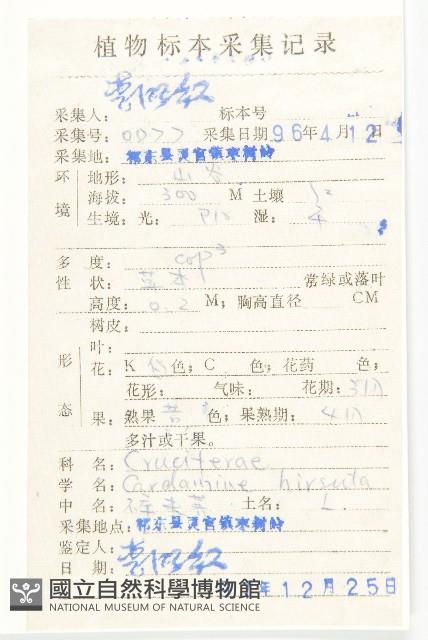 植物标本采集记录
采集人: 标本号
采集号: 0077 采集日期 96年4月12日
采集地: 祁东县灵官镇枣树岭
环境
地形: 山谷
海拔: 300 M 土壤
生境: 光: 湿: 4
多度: cop3
性状: 草本 常绿或落叶
高度: 0.2 M; 胸高直径 CM
树皮:
形态
叶:
花: K 色; C 色; 花药 色;
花形: 气味: 花期: 3月
果: 熟果 色; 果熟期: 4月
多汁或干果。
科名: Cruciferae
学名: Cardamine hirsuta
中名: 碎米荠 土名: L.
采集地点: 祁东县灵官镇枣树岭
鉴定人:
日期: 年12月25日
國立自然科學博物館
NATIONAL MUSEUM OF NATURAL SCIENCE